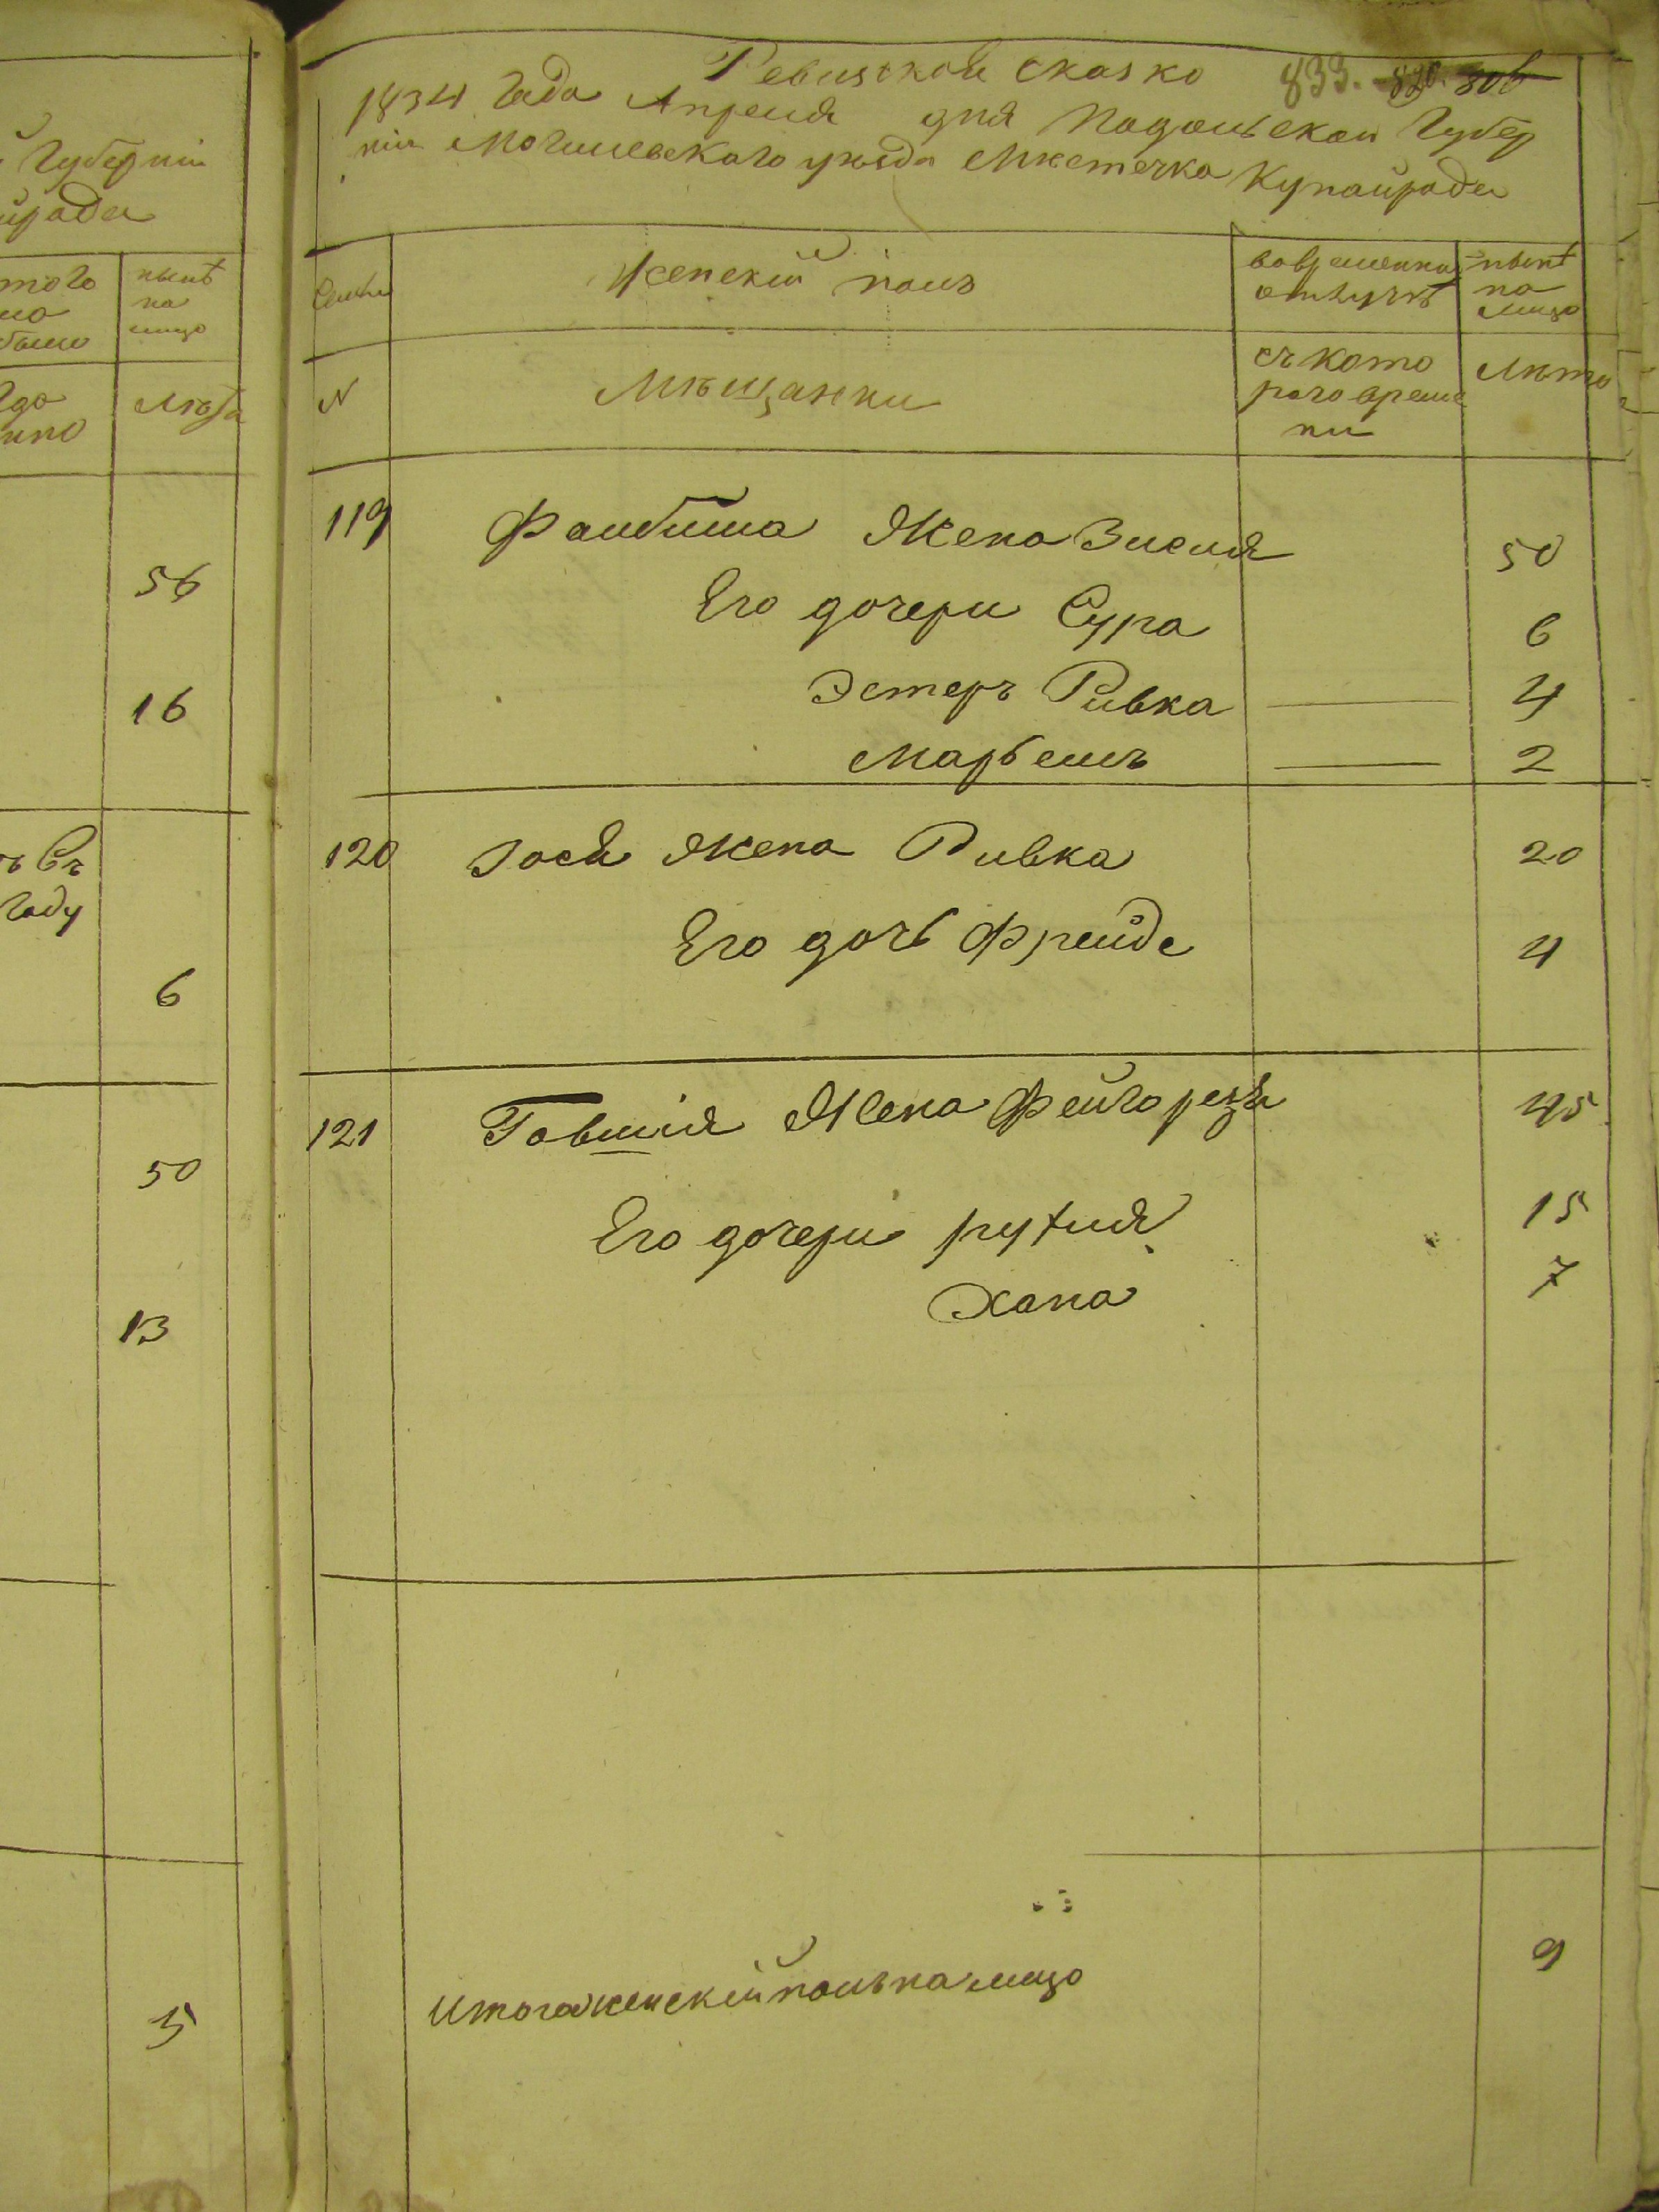 Губерніи
йрада
ныне
на
лицо
Лета
56
16
Съ
Году
6
50
13
5
Ревизская сказка
833. 820. 806
1834 Года Апреля дня Подольской Губер
ніи Могилевскаго уезда Местечка Купайрада
Семьи
Женскій полъ
вовременной
отлучкѣ
ныне
на
лицо
N
Мѣщанки
съ кото
раго време
ни
Лета
119 Файбиша Жена Зисля 50
Его дочери Сура 6
Эстеръ Ривка 4
Марьемъ 2
120 Іося Жена Ривка 20
Его дочь Фрейде 4
121 Говшія Жена 45
Его дочери рухля 15
Хана 7
Итога женскій полъ на лицо 9